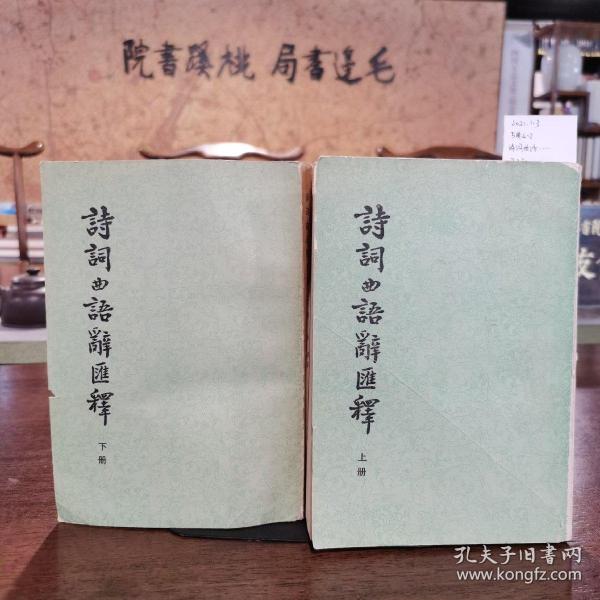 毛邊書局 桃蹊書院
2021.7.3
詩詞曲語辭匯釋
下册
詩詞曲語辭匯釋
上册
孔夫子旧书网
www.kongfz.com